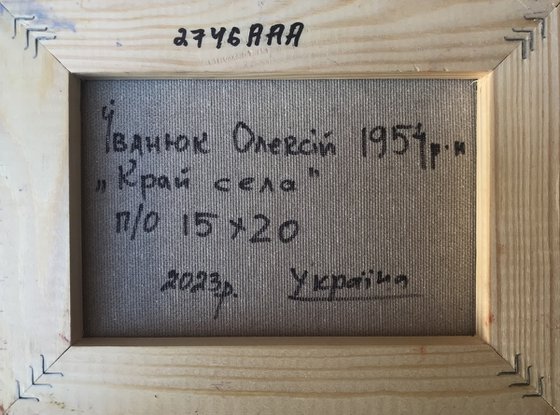 2746AAA
Іванюк Олексій 1954 р.н
„Край села"
п/о 15x20
2023р. Україна